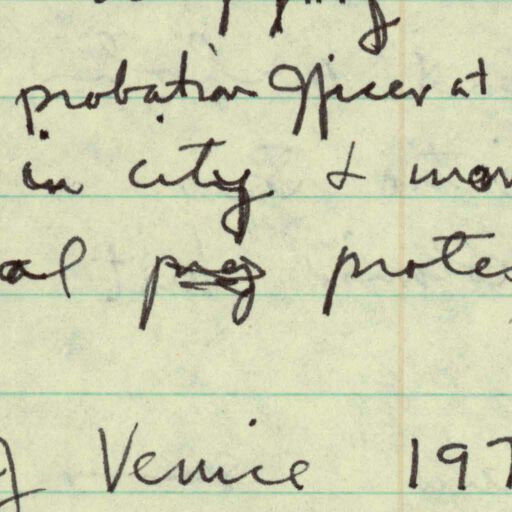 probation officer at
in city & mor
al prog protes
Venice 197